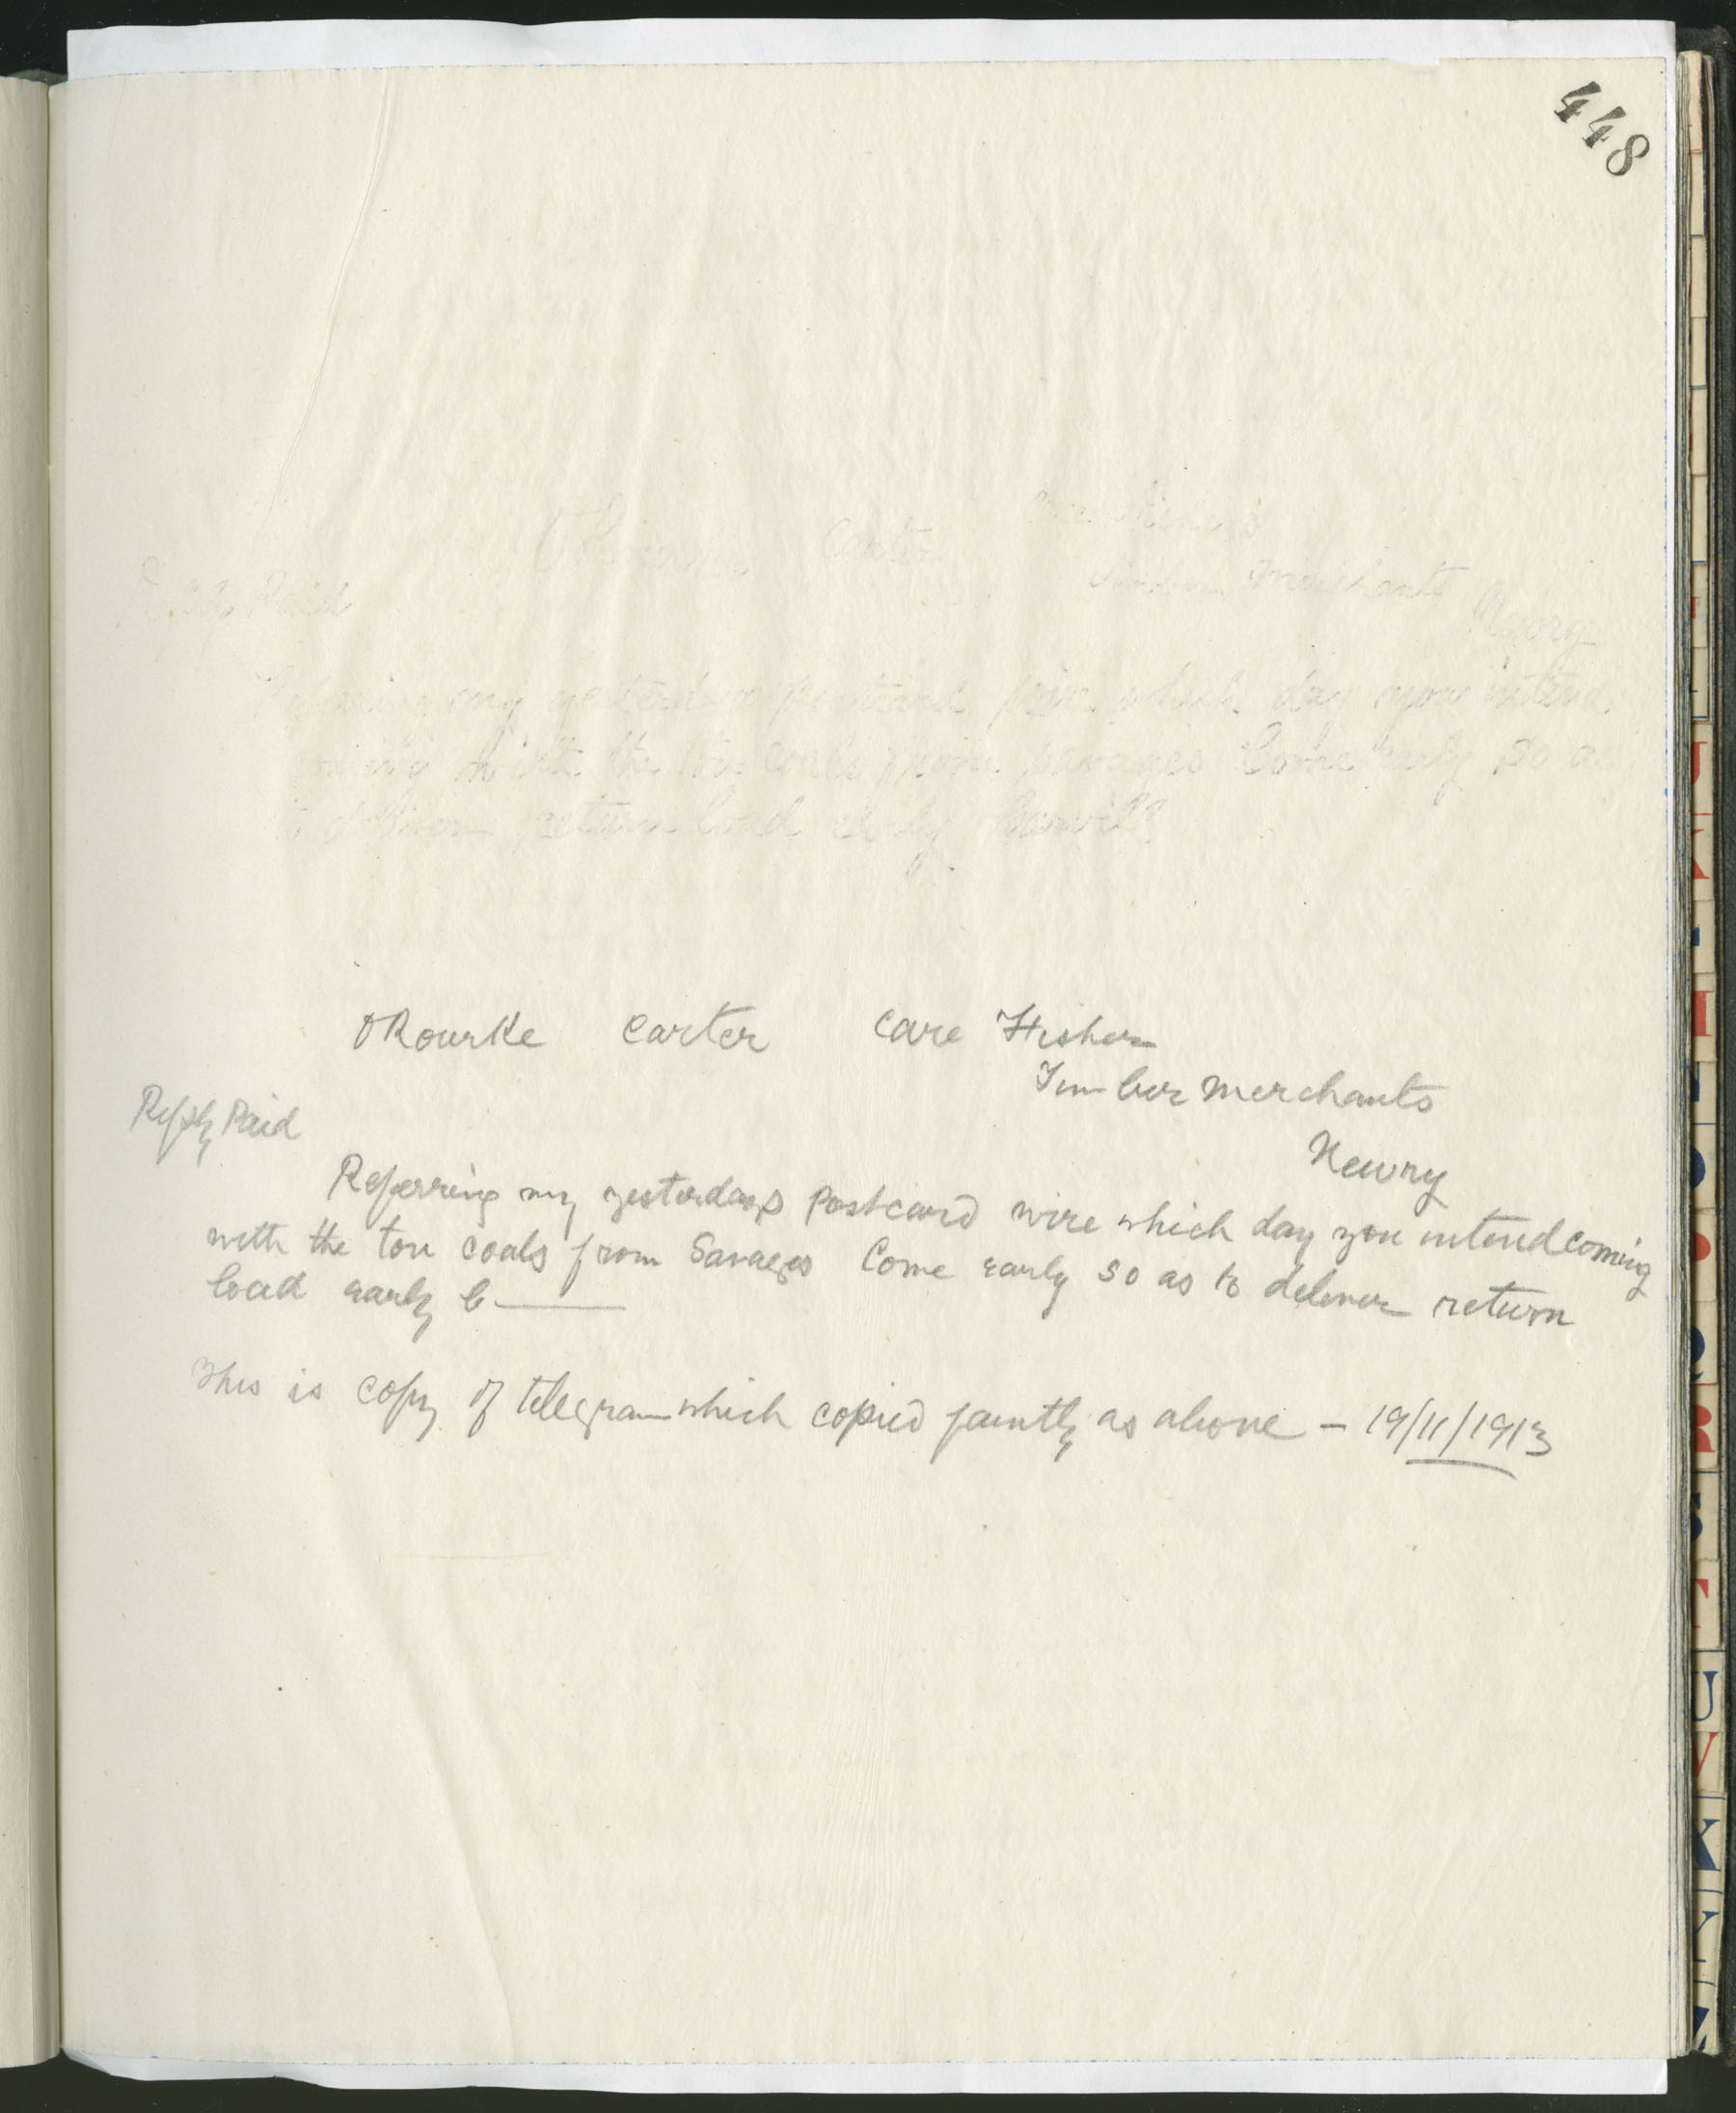 448
Carter
Reply Paid
Timber Merchants
Newry
my yesterdays postcard wire which day you intend
coming with the ton coals from Savages Come early so as
to deliver return load early
ORourke Carter care Fishers
Timber Merchants
Reply Paid
Newry
Referring my yesterdays postcard wire which day you intend coming
with the ton coals from Savages Come early so as to deliver return
load early C
This is copy of telegram which copied faintly as above – 19/11/1913
J
K
L
M
N
O
P
Q
R
S
T
U
V
X
Y